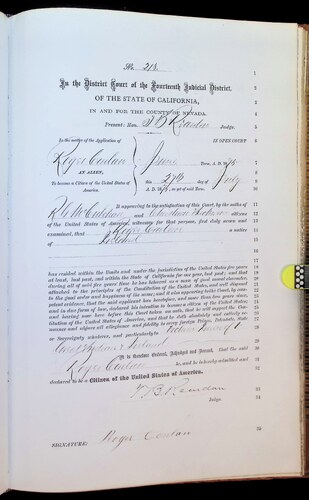 No. 218.
In the District Court of the Fourteenth Judicial District.
OF THE STATE OF CALIFORNIA,
IN AND FOR THE COUNTY OF NEVADA.
Present: Hon. T B Reardan Judge.
In the matter of the Application of
IN OPEN COURT
Roger Conlan
June Term, A. D. 18
AN ALIEN,
this 27th day of July
To become a Citizen of the United States of America.
A. D. 18 , as yet of said Term.
It appearing to the satisfaction of this Court, by the oaths of
R G and citizens
of the United States of America, witnesses for that purpose, first duly sworn and
examined, that Roger Conlan a native
of Ireland
has resided within the limits and under the jurisdiction of the United States five years
at least, last past, and within the State of California for one year, last past; and that
during all of said five years' time he has behaved as a man of good moral character,
attached to the principles of the Constitution of the United States, and well disposed
to the good order and happiness of the same; and it also appearing to the Court, by competent
evidence, that the said applicant has heretofore, and more than two years since,
and in due form of law, declared his intention to become a citizen of the United States
and having now here before this Court taken an oath, that he will support the Constitution
of the United States of America, and that he doth absolutely and entirely renounce
and abjure all allegiance and fidelity to every foreign Prince, Potentate, State
or Sovereignty whatever, and particularly to Victoria Queen of
Great Britain & Ireland
It is therefore Ordered, Adjudged and Decreed, That the said
Roger Conlan be, and he is hereby admitted and
declared to be a Citizen of the United States of America.
T. B. Reardan
Judge.
SIGNATURE: Roger Conlan